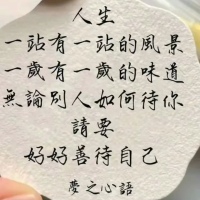 人生
一站有一站的風景
一歲有一歲的味道
無論別人如何待你
請要
好好善待自己
夢之心語